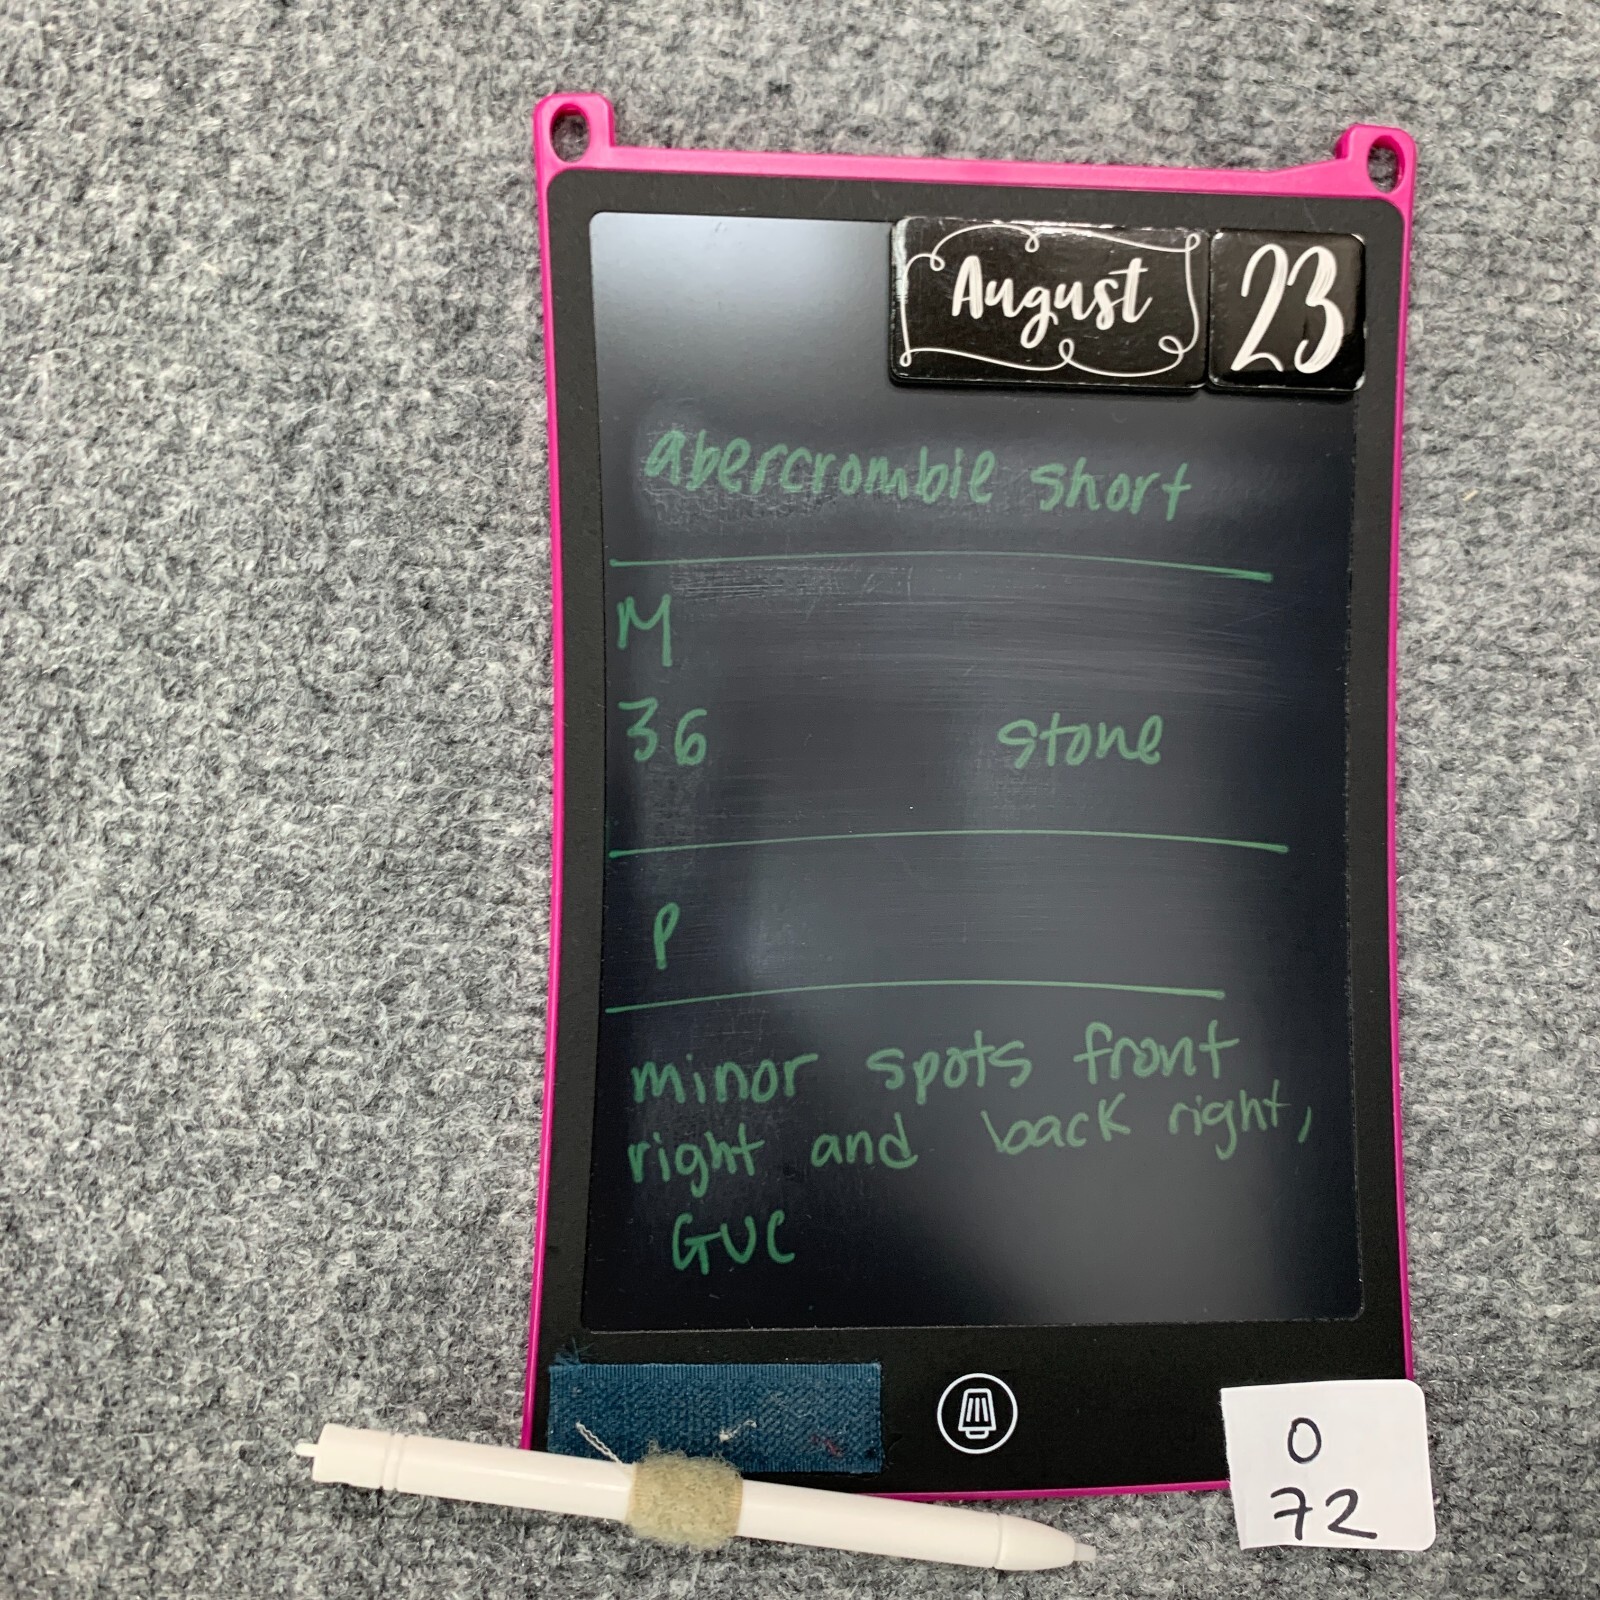 August 23
abercrombie short
M
36 stone
P
minor spots front
right and back right,
GUC
0
72